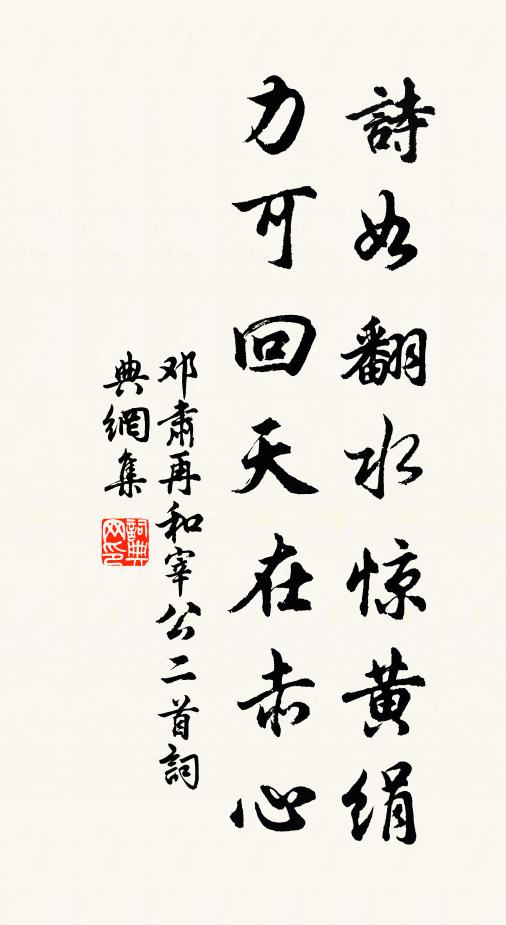 詩如翻水惊黄绢
力可回天在赤心
邓肃再和宰公二首詞
典網集
詞典网印